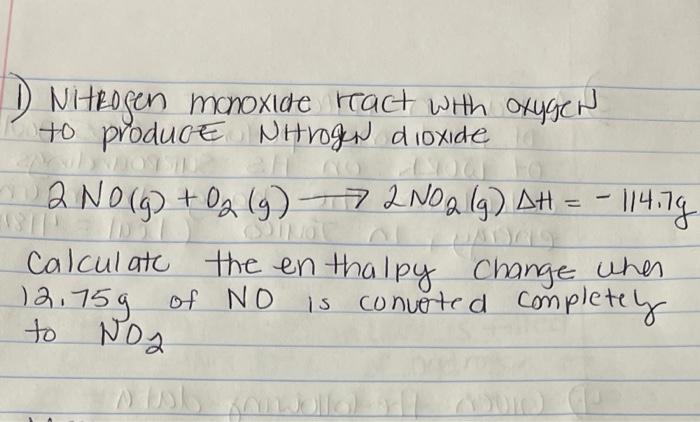 1) Nitrogen monoxide react with oxygen
to produce Nitrogen dioxide
2 NO(g) + O2 (g) → 2 NO2 (g) ΔH = - 114.7g
Calculate the enthalpy change when
12.75g of NO is converted completely
to NO2